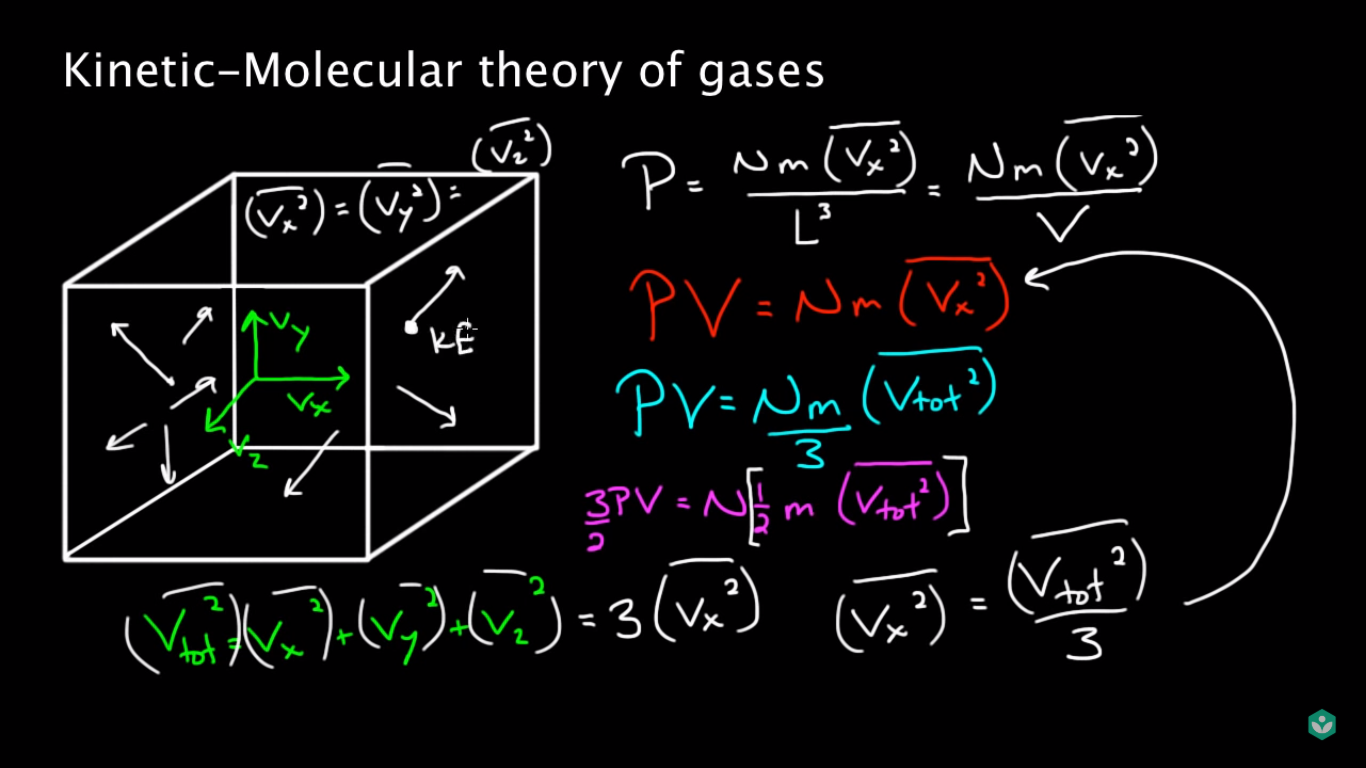 Kinetic-Molecular theory of gases
(v̅z²)
(v̅x²) = (v̅y²) =
P = Nm(v̅x²)/L³ = Nm(v̅x²)/V
PV = Nm(v̅x²)
vy
KE
vx
vz
PV = Nm/3 (v̅tot²)
3/2 PV = N[1/2 m (v̅tot²)]
(v̅tot²) = (v̅x²) + (v̅y²) + (v̅z²) = 3(v̅x²)
(v̅x²) = (v̅tot²)/3